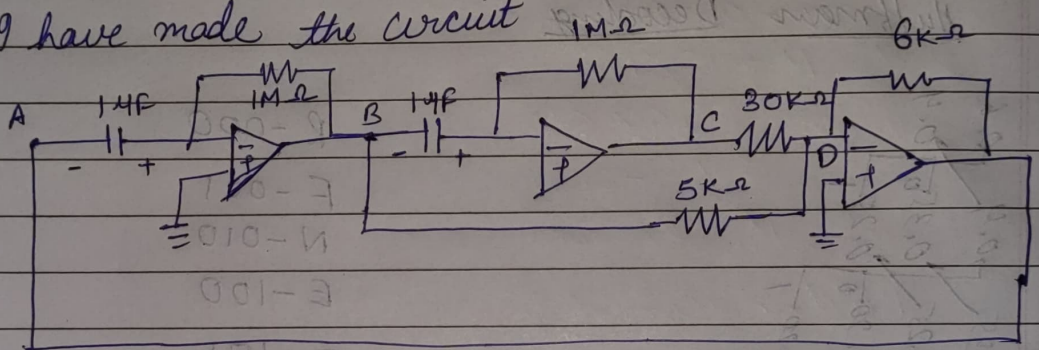 I have made the circuit
1MΩ
6KΩ
1MΩ
A
1μF
B
1μF
C
30KΩ
D
- + - +
- +
- +
- +
5KΩ